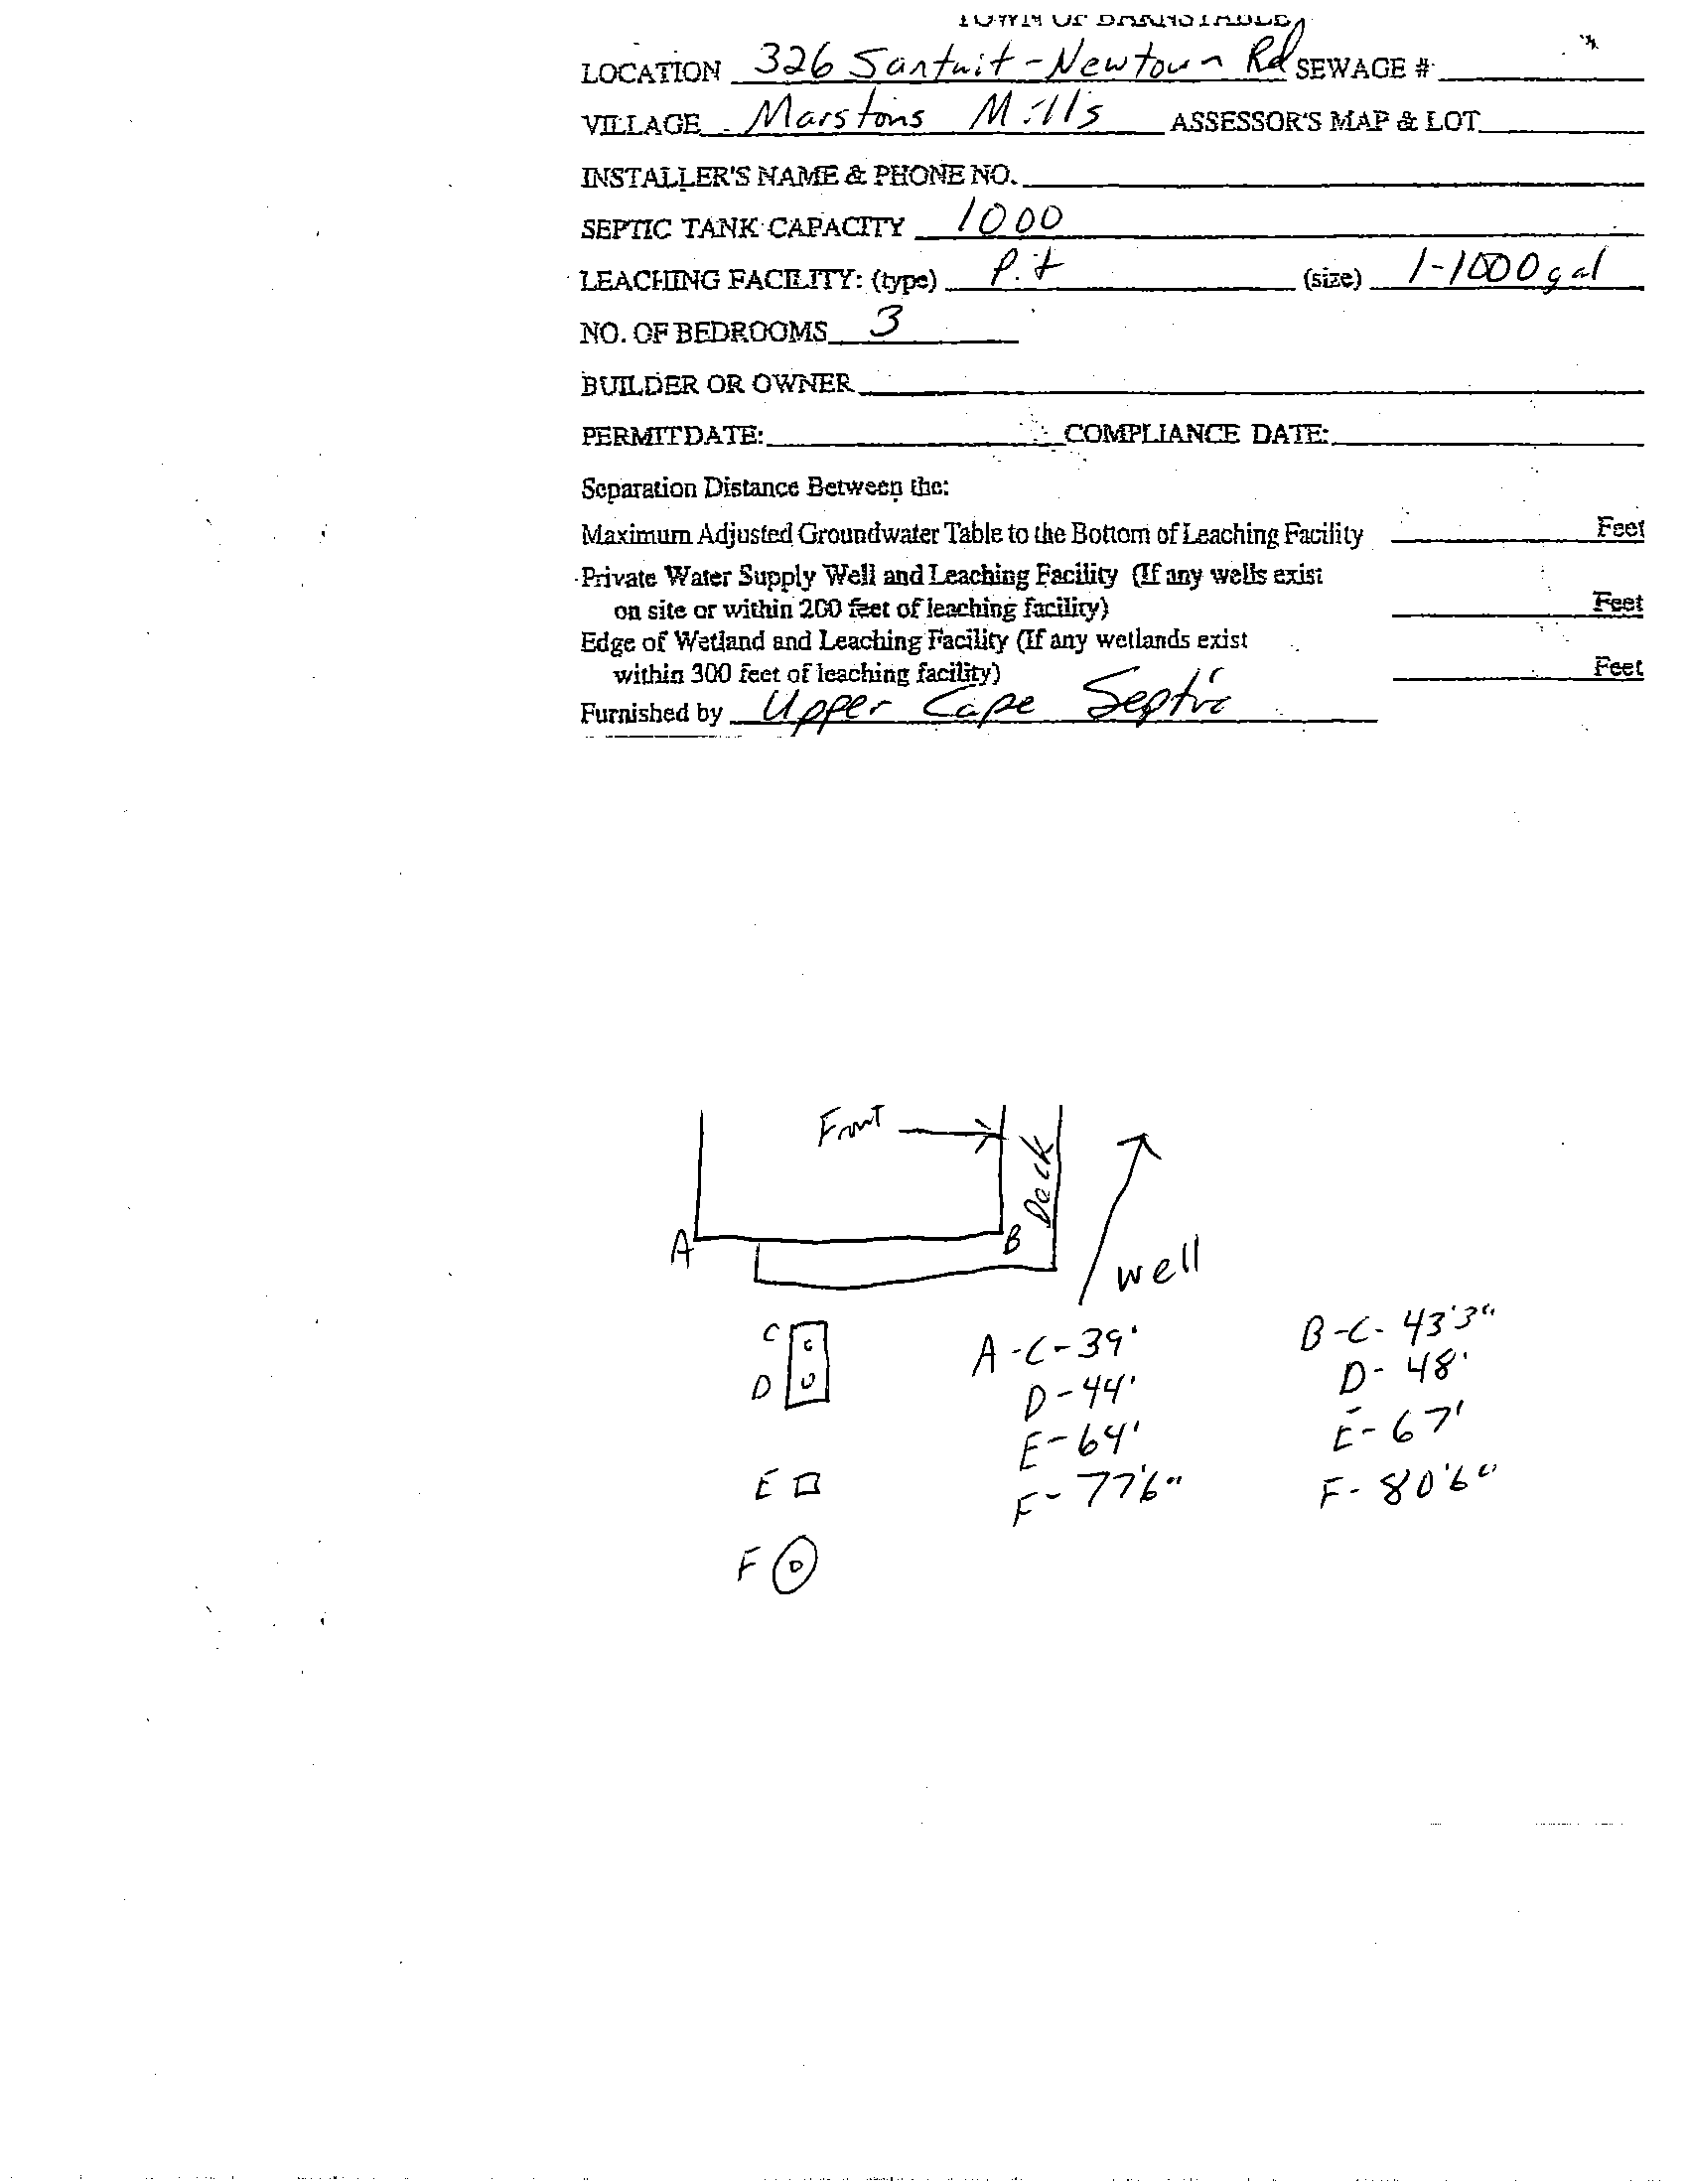 TOWN OF BARNSTABLE
LOCATION 326 Santuit-Newtown Rd SEWAGE #
VILLAGE Marstons Mills ASSESSOR'S MAP & LOT
INSTALLER'S NAME & PHONE NO.
SEPTIC TANK CAPACITY 1000
LEACHING FACILITY: (type) Pit (size) 1-1000 gal
NO. OF BEDROOMS 3
BUILDER OR OWNER
PERMITDATE: COMPLIANCE DATE:
Separation Distance Between the:
Maximum Adjusted Groundwater Table to the Bottom of Leaching Facility Feet
Private Water Supply Well and Leaching Facility (If any wells exist
on site or within 200 feet of leaching facility) Feet
Edge of Wetland and Leaching Facility (If any wetlands exist
within 300 feet of leaching facility) Feet
Furnished by Upper Cape Septic
Front
Deck
A B
well
C
D
E
F
A-C-39'
D-44'
E-64'
F-77'6"
B-C-43'3"
D-48'
E-67'
F-80'6"